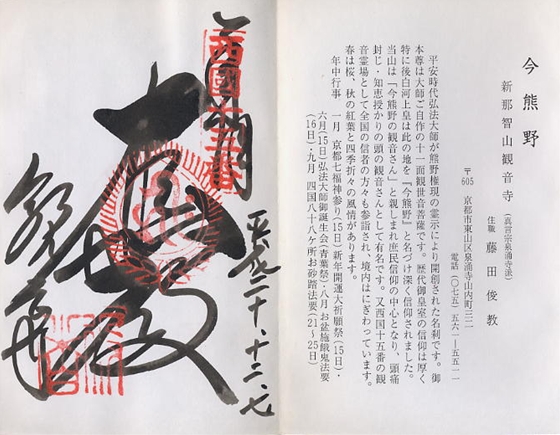 今熊野
新那智山観音寺
(真言宗泉涌寺派)
住職 藤田俊教
〒605 京都市東山区泉涌寺山内町三二
電話(〇七五)五六一―五五一一
平安時代弘法大師が熊野権現の霊示により開創された名刹です。御
本尊は大師ご自作の十一面観世音菩薩です。歴代御皇室の信仰は厚く
特に後白河上皇は此の地を「今熊野」と名づけ深く信仰されました。
当山は「今熊野の観音さん」と親しまれ庶民信仰の中心となり、頭痛
封じ・知恵授かりの頭の観音さんとして有名です。又西国十五番の観
音霊場として全国の信者の方々も参詣され、境内はにぎわっています。
春は桜、秋の紅葉と四季折々の風情があります。
年中行事 一月 京都七福神参り(15日)新年開運大祈願祭(15日)・
六月(15日)弘法大師御誕生会(青葉祭)・八月 お盆施餓鬼法要
(16日)・九月 四国八十八ヶ所お砂踏法要(21〜25日)
平成二十、十二、七
西國十五番
大悲殿
観音寺